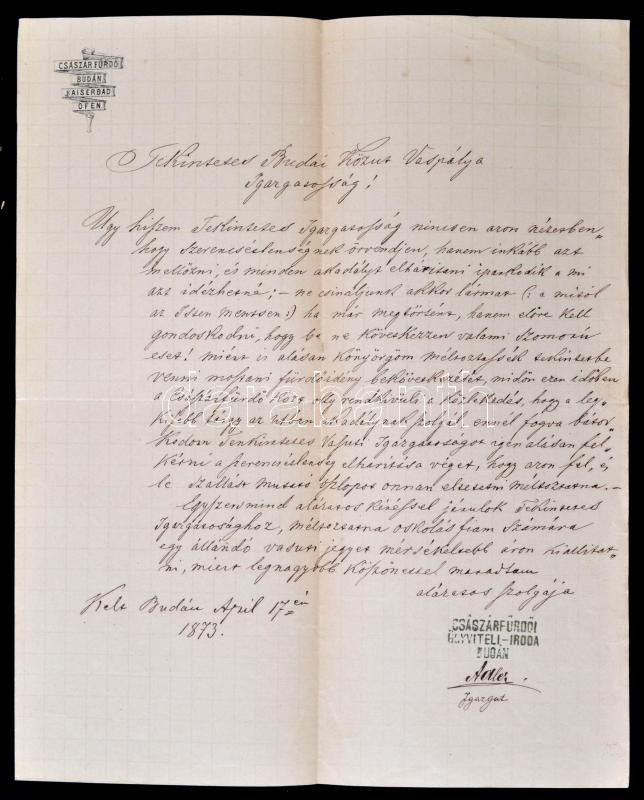 CSÁSZÁR FÜRDŐ
BUDÁN
KAISERBAD
OFEN
Tekintetes Budai Közut Vaspálya
Igazgatosság!
Ugy hiszem Tekintetes Igazgatosság nincsen azon nézetben
hogy Szerencsétlenségnek örvendjen, hanem inkább azt
mellőzni, és minden akadályt elháritani iparkodik a mi
azt idézhetné; – ne csináljunk akkor lármát (: a mitől
az Isten mentsen :) ha már megtörtént, hanem előre kell
gondoskodni, hogy be ne következzen valami Szomorú
eset! miért is alásan könyörgöm méltóztassék tekintetbe
venni mostani fürdőidény bekövetkezését, midőn ezen időben
a Császárfürdő közt oly rendkivüli a közlekedés, hogy a leg-
kisebb tárgy az utban akadálynak szolgál, ennél fogva bátor-
kodom Tekintetes Vasuti Igazgatoságot igen alásan fel-
kérni a szerencsétlenség elháritása véget, hogy azon fel, és
le Szállást mutató oszlopot onnan eltetetni méltóztatna. –
Egyszersmind alázatos kéréssel járulok Tekintetes
Igazgatosághoz, méltóztatna oskolás fiam Számára
egy állandó vasuti jegyet mérsékeltebb áron kiállitat-
ni, miért legnagyobb Köszönettel maradtam
alázatos szolgája
Kelt Budán April 17én
1873.
CSÁSZÁRFÜRDŐI
ÜGYVITELI-IRODA
BUDÁN
Adler
Igazgat
darabanth